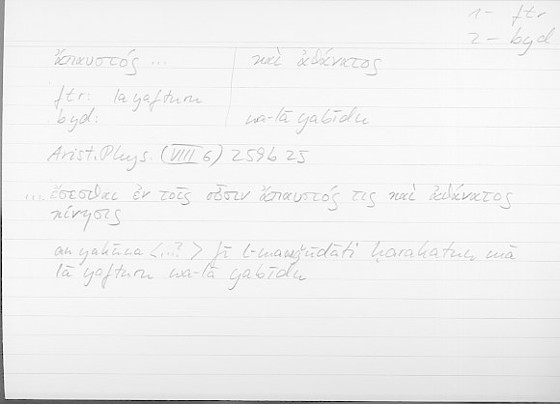 1 – ftr
2 – byd
ἄπαυστός ... καὶ ἀθάνατος
ftr: lā yafturu
byd: wa-lā yabīdu
Arist. Phys. (VIII 6) 259b 25
... ἔσεσθαι ἐν τοῖς οὖσιν ἄπαυστός τις καὶ ἀθάνατος
κίνησις
an yakūna <...?> fī l-mawǧūdāti ḥarakatun mā
lā yafturu wa-lā yabīdu